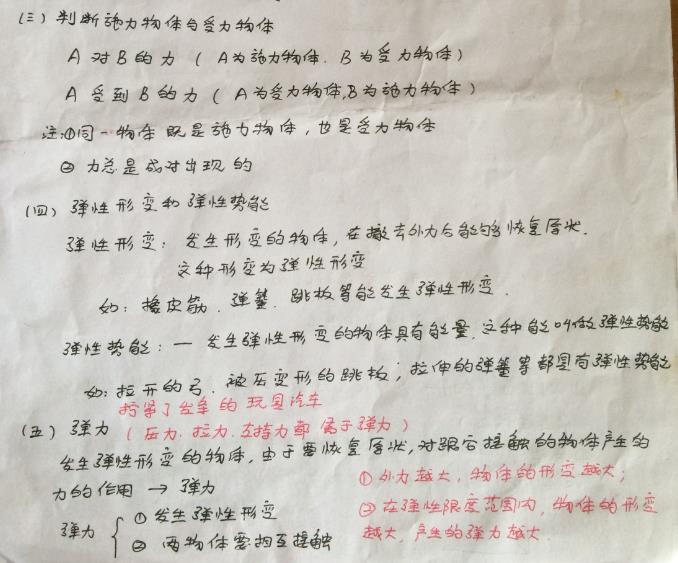 (三) 判断施力物体与受力物体
A 对 B 的力 ( A为施力物体. B为受力物体)
A 受到 B 的力 ( A为受力物体,B为施力物体)
注:①同一物体既是施力物体,也是受力物体
② 力总是成对出现的
(四) 弹性形变和弹性势能
弹性形变: 发生形变的物体,在撤去外力后能够恢复原状.
这种形变为弹性形变
如: 橡皮筋. 弹簧. 跳板等能发生弹性形变.
弹性势能: 一 发生弹性形变的物体具有能量.这种能叫做弹性势能
如:拉开的弓. 被压变形的跳板; 拉伸的弹簧等都具有弹性势能
拧紧了发条的玩具汽车
(五) 弹力 (压力.拉力.支持力都属于弹力)
发生弹性形变的物体,由于要恢复原状,对跟它接触的物体产生的
力的作用 → 弹力
① 外力越大,物体的形变越大;
弹力 { ① 发生弹性形变
② 两物体需相互接触
② 在弹性限度范围内,物体的形变
越大,产生的弹力越大.